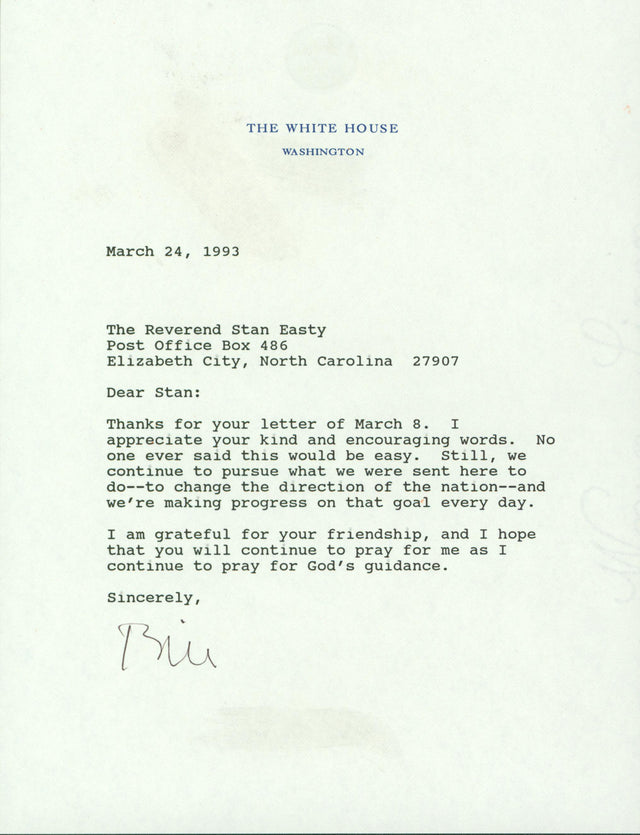 THE WHITE HOUSE
WASHINGTON
March 24, 1993
The Reverend Stan Easty
Post Office Box 486
Elizabeth City, North Carolina  27907
Dear Stan:
Thanks for your letter of March 8.  I
appreciate your kind and encouraging words.  No
one ever said this would be easy.  Still, we
continue to pursue what we were sent here to
do--to change the direction of the nation--and
we're making progress on that goal every day.
I am grateful for your friendship, and I hope
that you will continue to pray for me as I
continue to pray for God's guidance.
Sincerely,
Bill